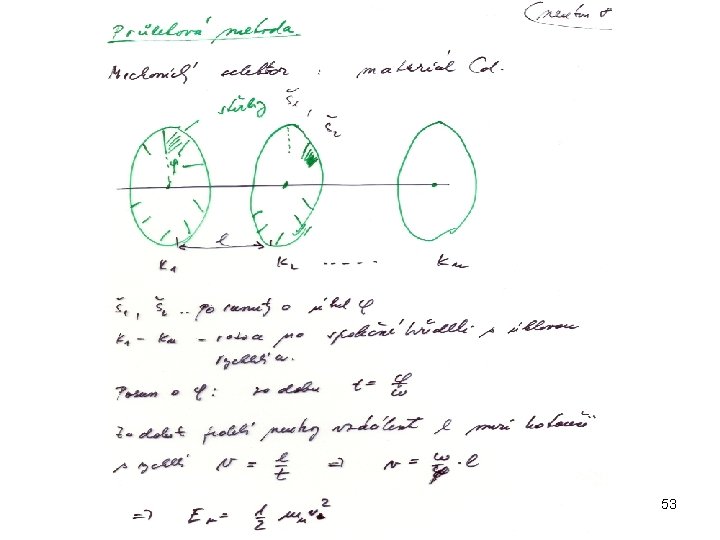 Průletová metoda
Mechanický selektor : materiál Cd.
štěrbiny š₁, š₂
φ
l
K₁ K₂ ..... Kₘ
š₁, š₂ .. posunuty o úhel φ
K₁ - Kₘ - rotace na společné hřídeli s úhlovou
rychlostí ω.
Posun o φ: za dobu t = φ/ω
Za dobu t proletí neutrony vzdálenost l mezi kotouči
s rychlostí v = l/t => v = ω/φ · l
=> Eₙ = 1/2 mₙv²
53